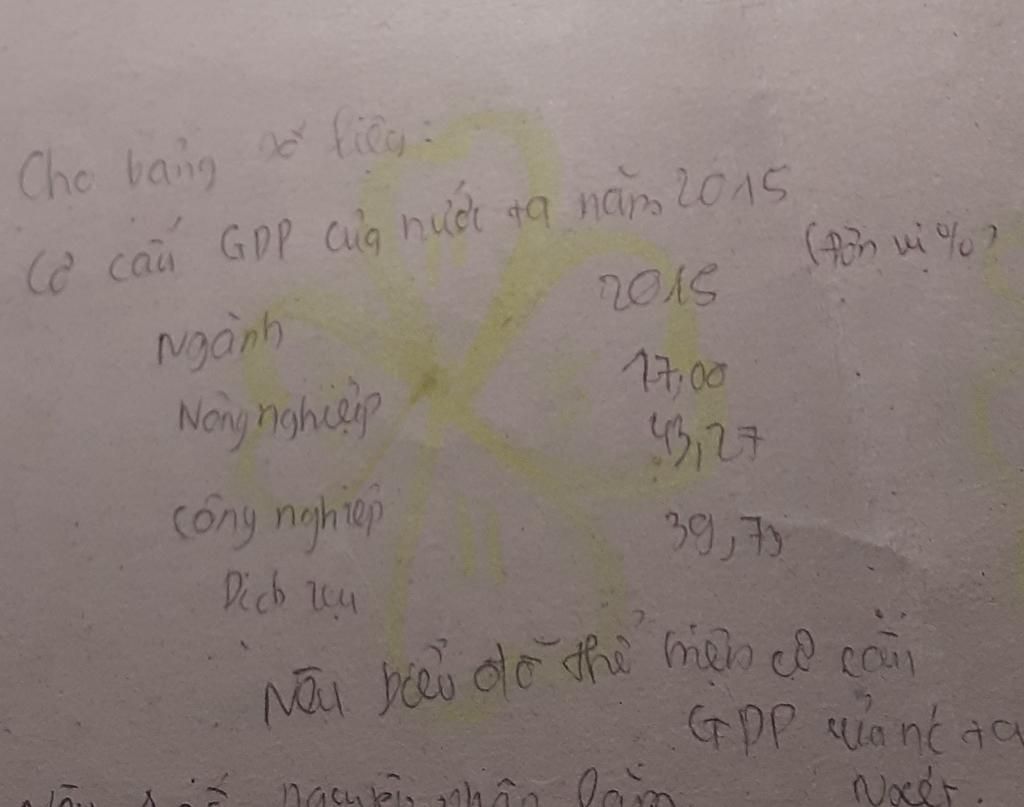 Cho bảng số liệu:
Cơ cấu GDP của nước ta năm 2015
(đơn vị %)
Ngành 2015
Nông nghiệp 17,00
Công nghiệp 43,27
Dịch vụ 39,73
biểu đồ thể hiện cơ cấu
GDP của nc ta
nguyên nhân làm